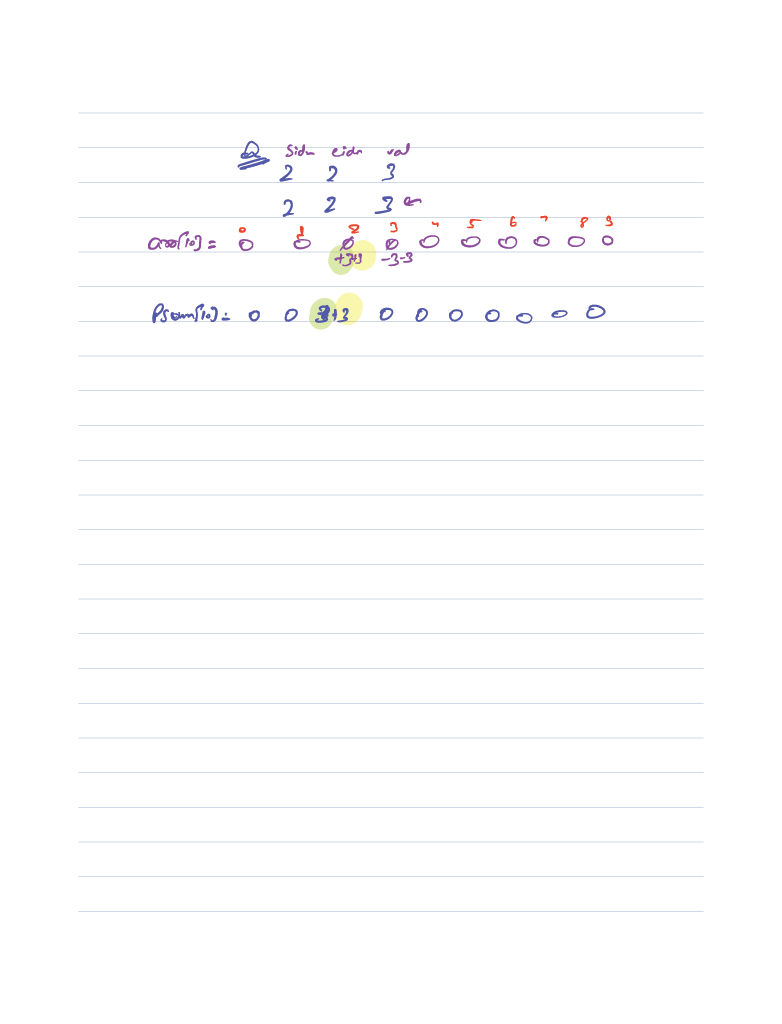 Q sidx eidx val
2 2 3
2 2 3 ←
0 1 2 3 4 5 6 7 8 9
arr[10] = 0 0 0 0 0 0 0 0 0 0
+3+3 -3-3
Psum[10] = 0 0 3+3 0 0 0 0 0 0 0